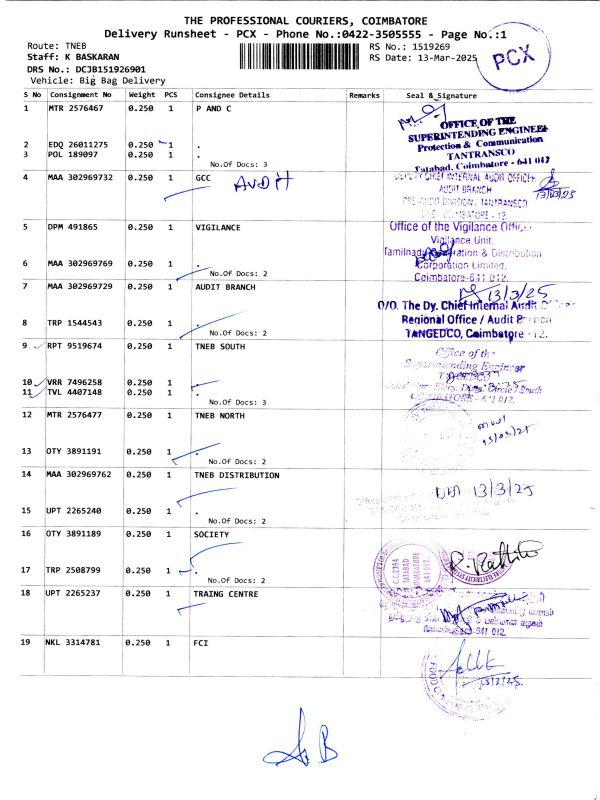 THE PROFESSIONAL COURIERS, COIMBATORE
Delivery Runsheet - PCX - Phone No.:0422-3505555 - Page No.:1
Route: TNEB
RS No.: 1519269
Staff: K BASKARAN
RS Date: 13-Mar-2025
PCX
DRS No.: DCJB151926901
Vehicle: Big Bag Delivery
S No Consignment No Weight PCS Consignee Details Remarks Seal & Signature
1 MTR 2576467 0.250 1 P AND C
OFFICE OF THE
SUPERINTENDING ENGINEER
Protection & Communication
TANTRANSCO
Tatabad, Coimbatore - 641 012
2 EDQ 26011275 0.250 1 .
3 POL 189097 0.250 1 .
No.Of Docs: 3
4 MAA 302969732 0.250 1 GCC
AUDIT
DEPUTY CHIEF INTERNAL AUDIT OFFICER
AUDIT BRANCH
13/03/25
5 DPM 491865 0.250 1 VIGILANCE
Office of the Vigilance Officer
Vigilance Unit,
Tamilnadu Generation & Distribution
Corporation Limited,
Coimbatore-641 012.
6 MAA 302969769 0.250 1 .
No.Of Docs: 2
7 MAA 302969729 0.250 1 AUDIT BRANCH
13/3/25
O/O. The Dy. Chief Internal Audit Officer
Regional Office / Audit Branch
TANGEDCO, Coimbatore - 12.
8 TRP 1544543 0.250 1 .
No.Of Docs: 2
9 RPT 9519674 0.250 1 TNEB SOUTH
Office of the
Superintending Engineer
10 VRR 7496258 0.250 1 .
11 TVL 4407148 0.250 1 .
No.Of Docs: 3
12 MTR 2576477 0.250 1 TNEB NORTH
13/03/25
13 OTY 3891191 0.250 1 .
No.Of Docs: 2
14 MAA 302969762 0.250 1 TNEB DISTRIBUTION
13/3/25
15 UPT 2265240 0.250 1 .
No.Of Docs: 2
16 OTY 3891189 0.250 1 SOCIETY
C.C.2394
TATABAD
COIMBATORE
641 012.
17 TRP 2508799 0.250 1 .
No.Of Docs: 2
18 UPT 2265237 0.250 1 TRAING CENTRE
19 NKL 3314781 0.250 1 FCI